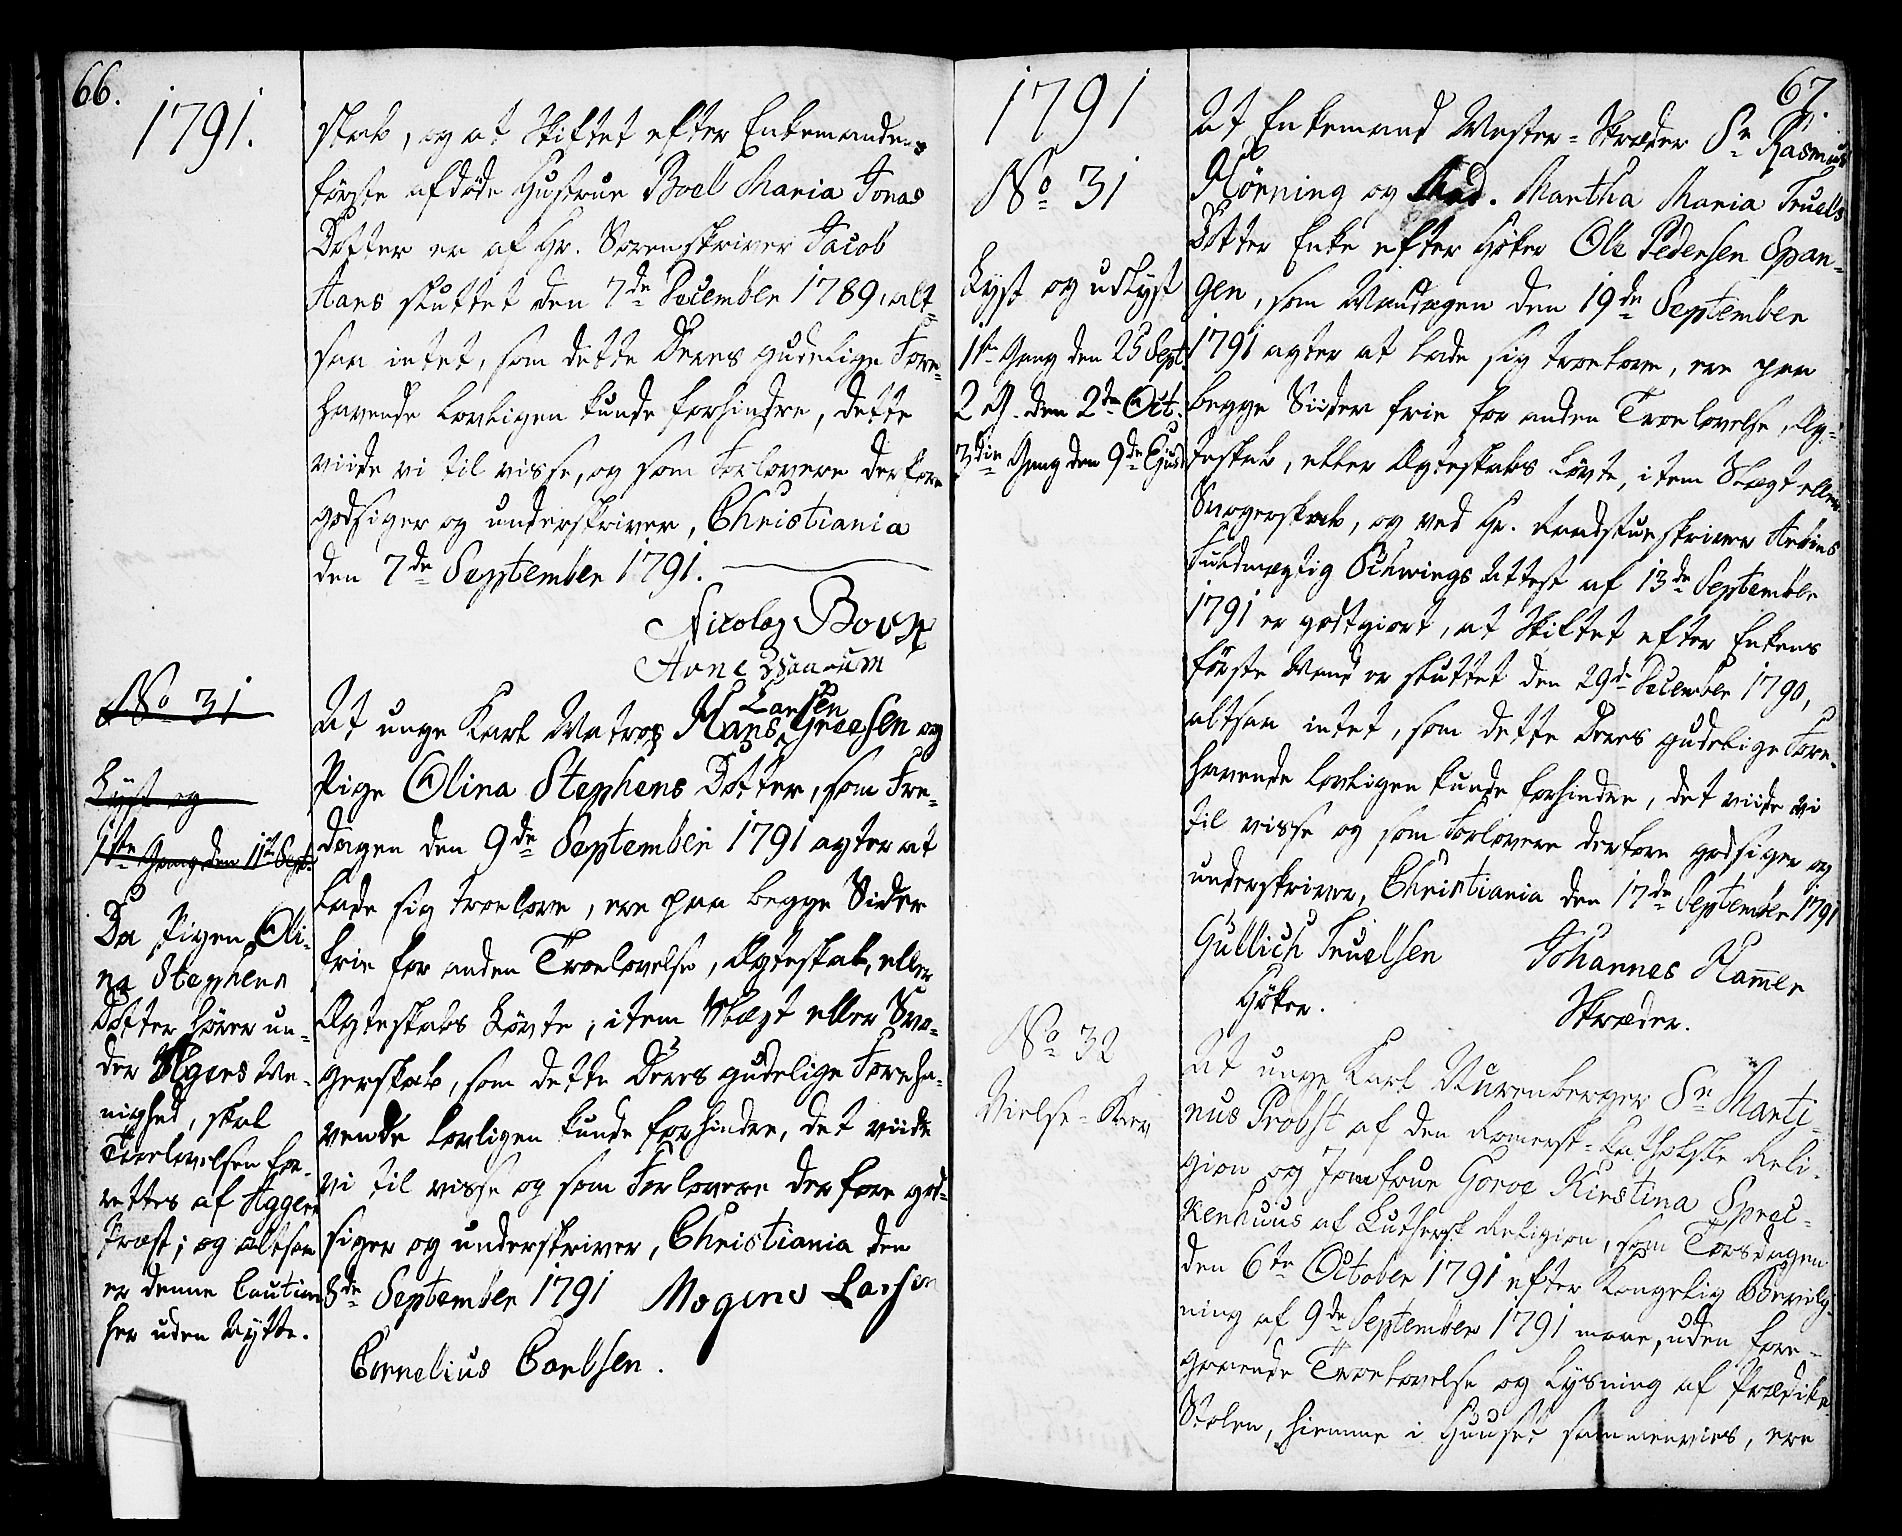 66.
1791.
skab, og at Skiftet efter Enkemandens
første afdøde Hustrue Boel Maria Jonas
Dotter er af Hr. Sorenskriver Jacob
Aars sluttet den 7de December 1789, alt-
saa intet, som dette Deres gudelige Fore-
havende lovligen kunde forhindre, dette
viide vi til visse, og som Forlovere derfore
godsiger og underskriver, Christiania
den 7de September 1791.
Nicolay
Arne
No 31
Lyst og
1ste Gang den 11te Sept.
Da Pigen Oli-
na Stephens
Dotter hører un-
der Agers Me-
nighed, skal
Troelovelsen for-
rettes af Aggers
Præst; og altsaa
er denne Caution
her uden Nytte.
At unge Karl Matros Hans Larsen Greesen og
Pige Olina Stephens Dotter, som Fre-
dagen den 9de September 1791 agter at
lade sig troelove, ere paa begge Sider
frie for anden Troelovelse, Ægteskab, eller
Ægteskabs Løvte, item Slægt eller Svo-
gerskab, som dette Deres gudelige Foreha-
vende lovligen kunde forhindre, det viide
vi til visse og som Forlovere derfore god-
siger og underskriver, Christiania den
8de September 1791 Mogens Larsen
Cornelius Carlsen.
67.
1791
No 31
Lyst og udlyst
1ste Gang den 25 Sept.
2 G. den 2den Oct.
3die Gang den 9de Ejusd.
At Enkemand Mester-Skræder Sr Rasmus
Hörning og Mad. Martha Maria Truels
Dotter Enke efter Høker Ole Pedersen Span-
gen, som Mandagen den 19de September
1791 agter at lade sig troelove, ere paa
begge Siider frie for anden Troelovelse, Æg-
teskab, eller Ægteskabs Løvte, item Slægt eller
Svogerskab, og ved Hr. Raadstueskriver
Fuldmægtig Schwings Attest af 13de September
1791 er godtgiort, at Skiftet efter Enkens
første Mand er sluttet den 29de December 1790,
altsaa intet, som dette Deres gudelige Fore-
havende lovligen kunde forhindre, det viide vi
til visse og som Forlovere derfore godsiger og
underskriver, Christiania den 17de September 1791
Gullich Truelsen Johannes Hamer
Høker. Skræder.
No 32
Vielse-Brev
At unge Karl Nurenberger Sr Marti-
nus Probst af den Romersk-Catholske Reli-
gion og Jomfrue Gorve Kirstina Sprec-
kenhuus af Luthersk Religion, som Torsdagen
den 6te October 1791 efter Kongelig Bevilg-
ning af 9de September 1791 maae, uden fore-
gaaende Troelovelse og Lysning af Prædike-
Stolen, hiemme i Huuset sammenvies, ere